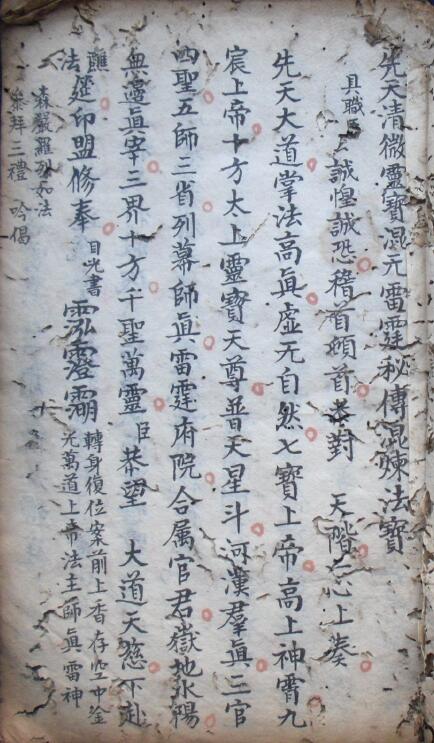 先天清微靈寶混元雷霆秘傳混煉法寶
具職臣 誠惶誠恐稽首頓首恭對 天階仁心上奏
先天大道掌法高真虛无自然七寶上帝高上神霄九
宸上帝十方太上靈寶天尊普天星斗河漢羣真三官
四聖五師三省列幕師真雷霆府院合属官君嶽地水陽
無邊真宰三界十方千聖萬靈臣恭望 大道天慈下赴
醮
法筵印盟修奉
目光書
轉身復位案前上香存空中金
光萬道上帝法主師真雷神
森嚴羅列如法
叅拜三禮 吟偈